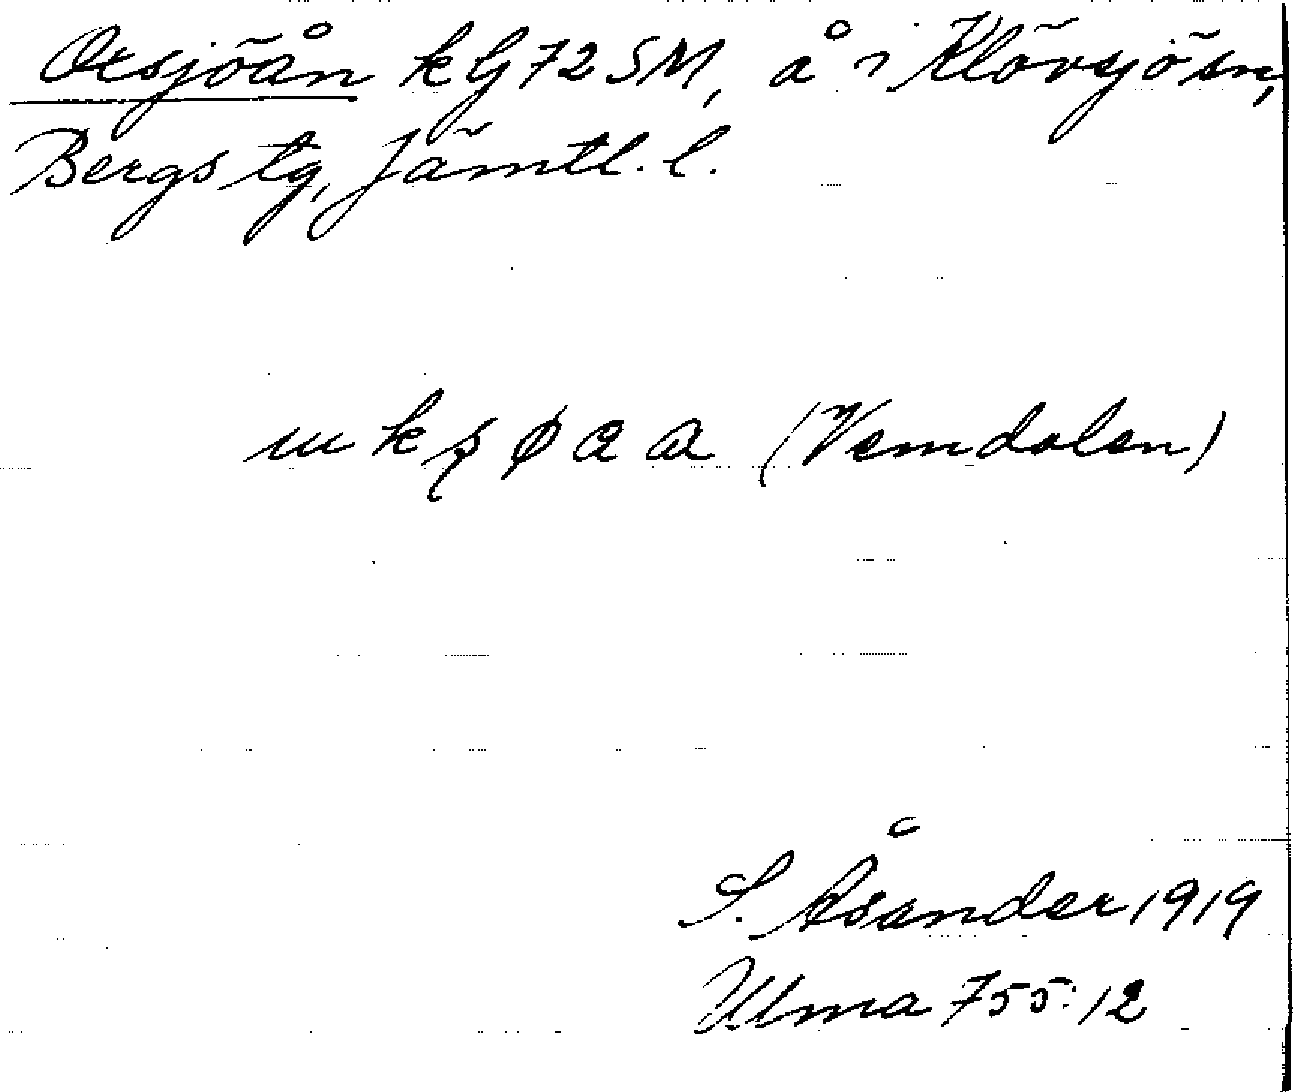 Oxsjöån kG72SM, å i Klövsjö sn,
Bergs tg, Jämtl. l.
(Vemdalen)
S. Åsander 1919
Ulma 755:12